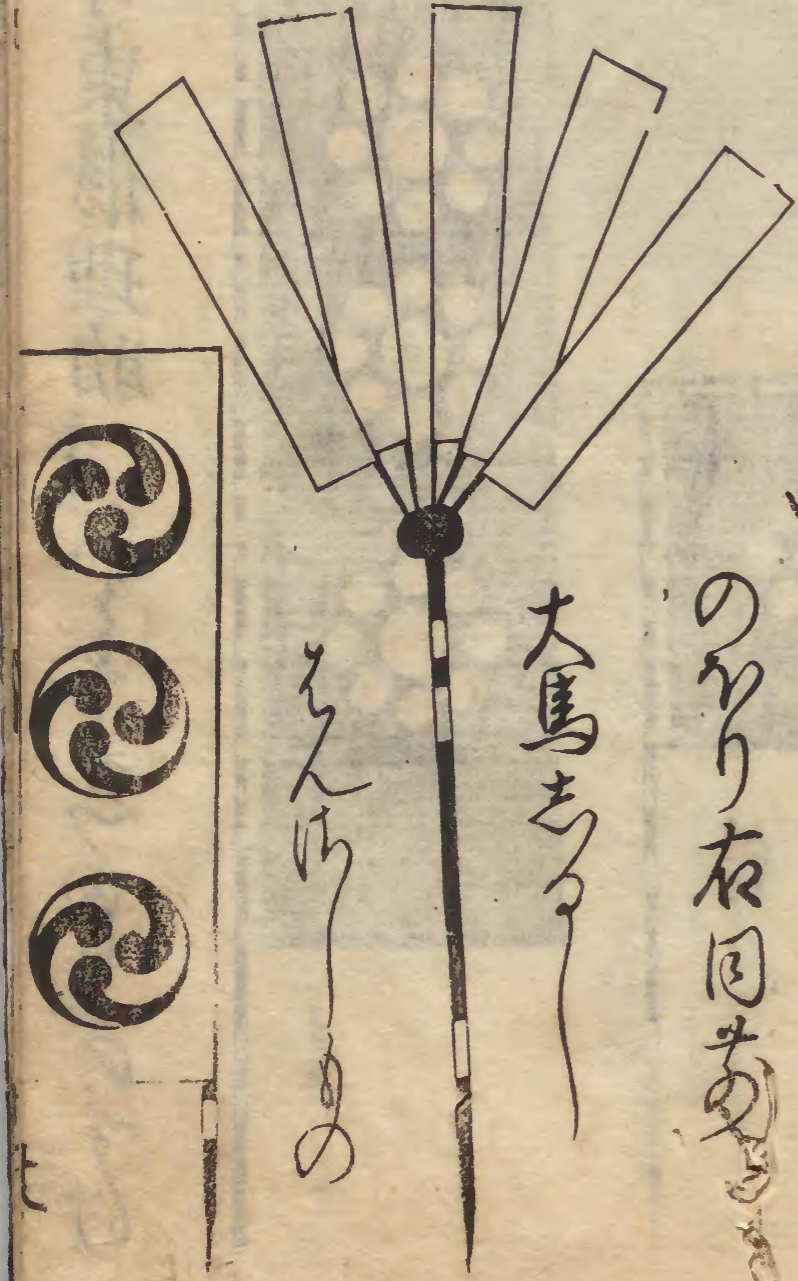 のほり右同前
大馬志るし
はんさしもの
七